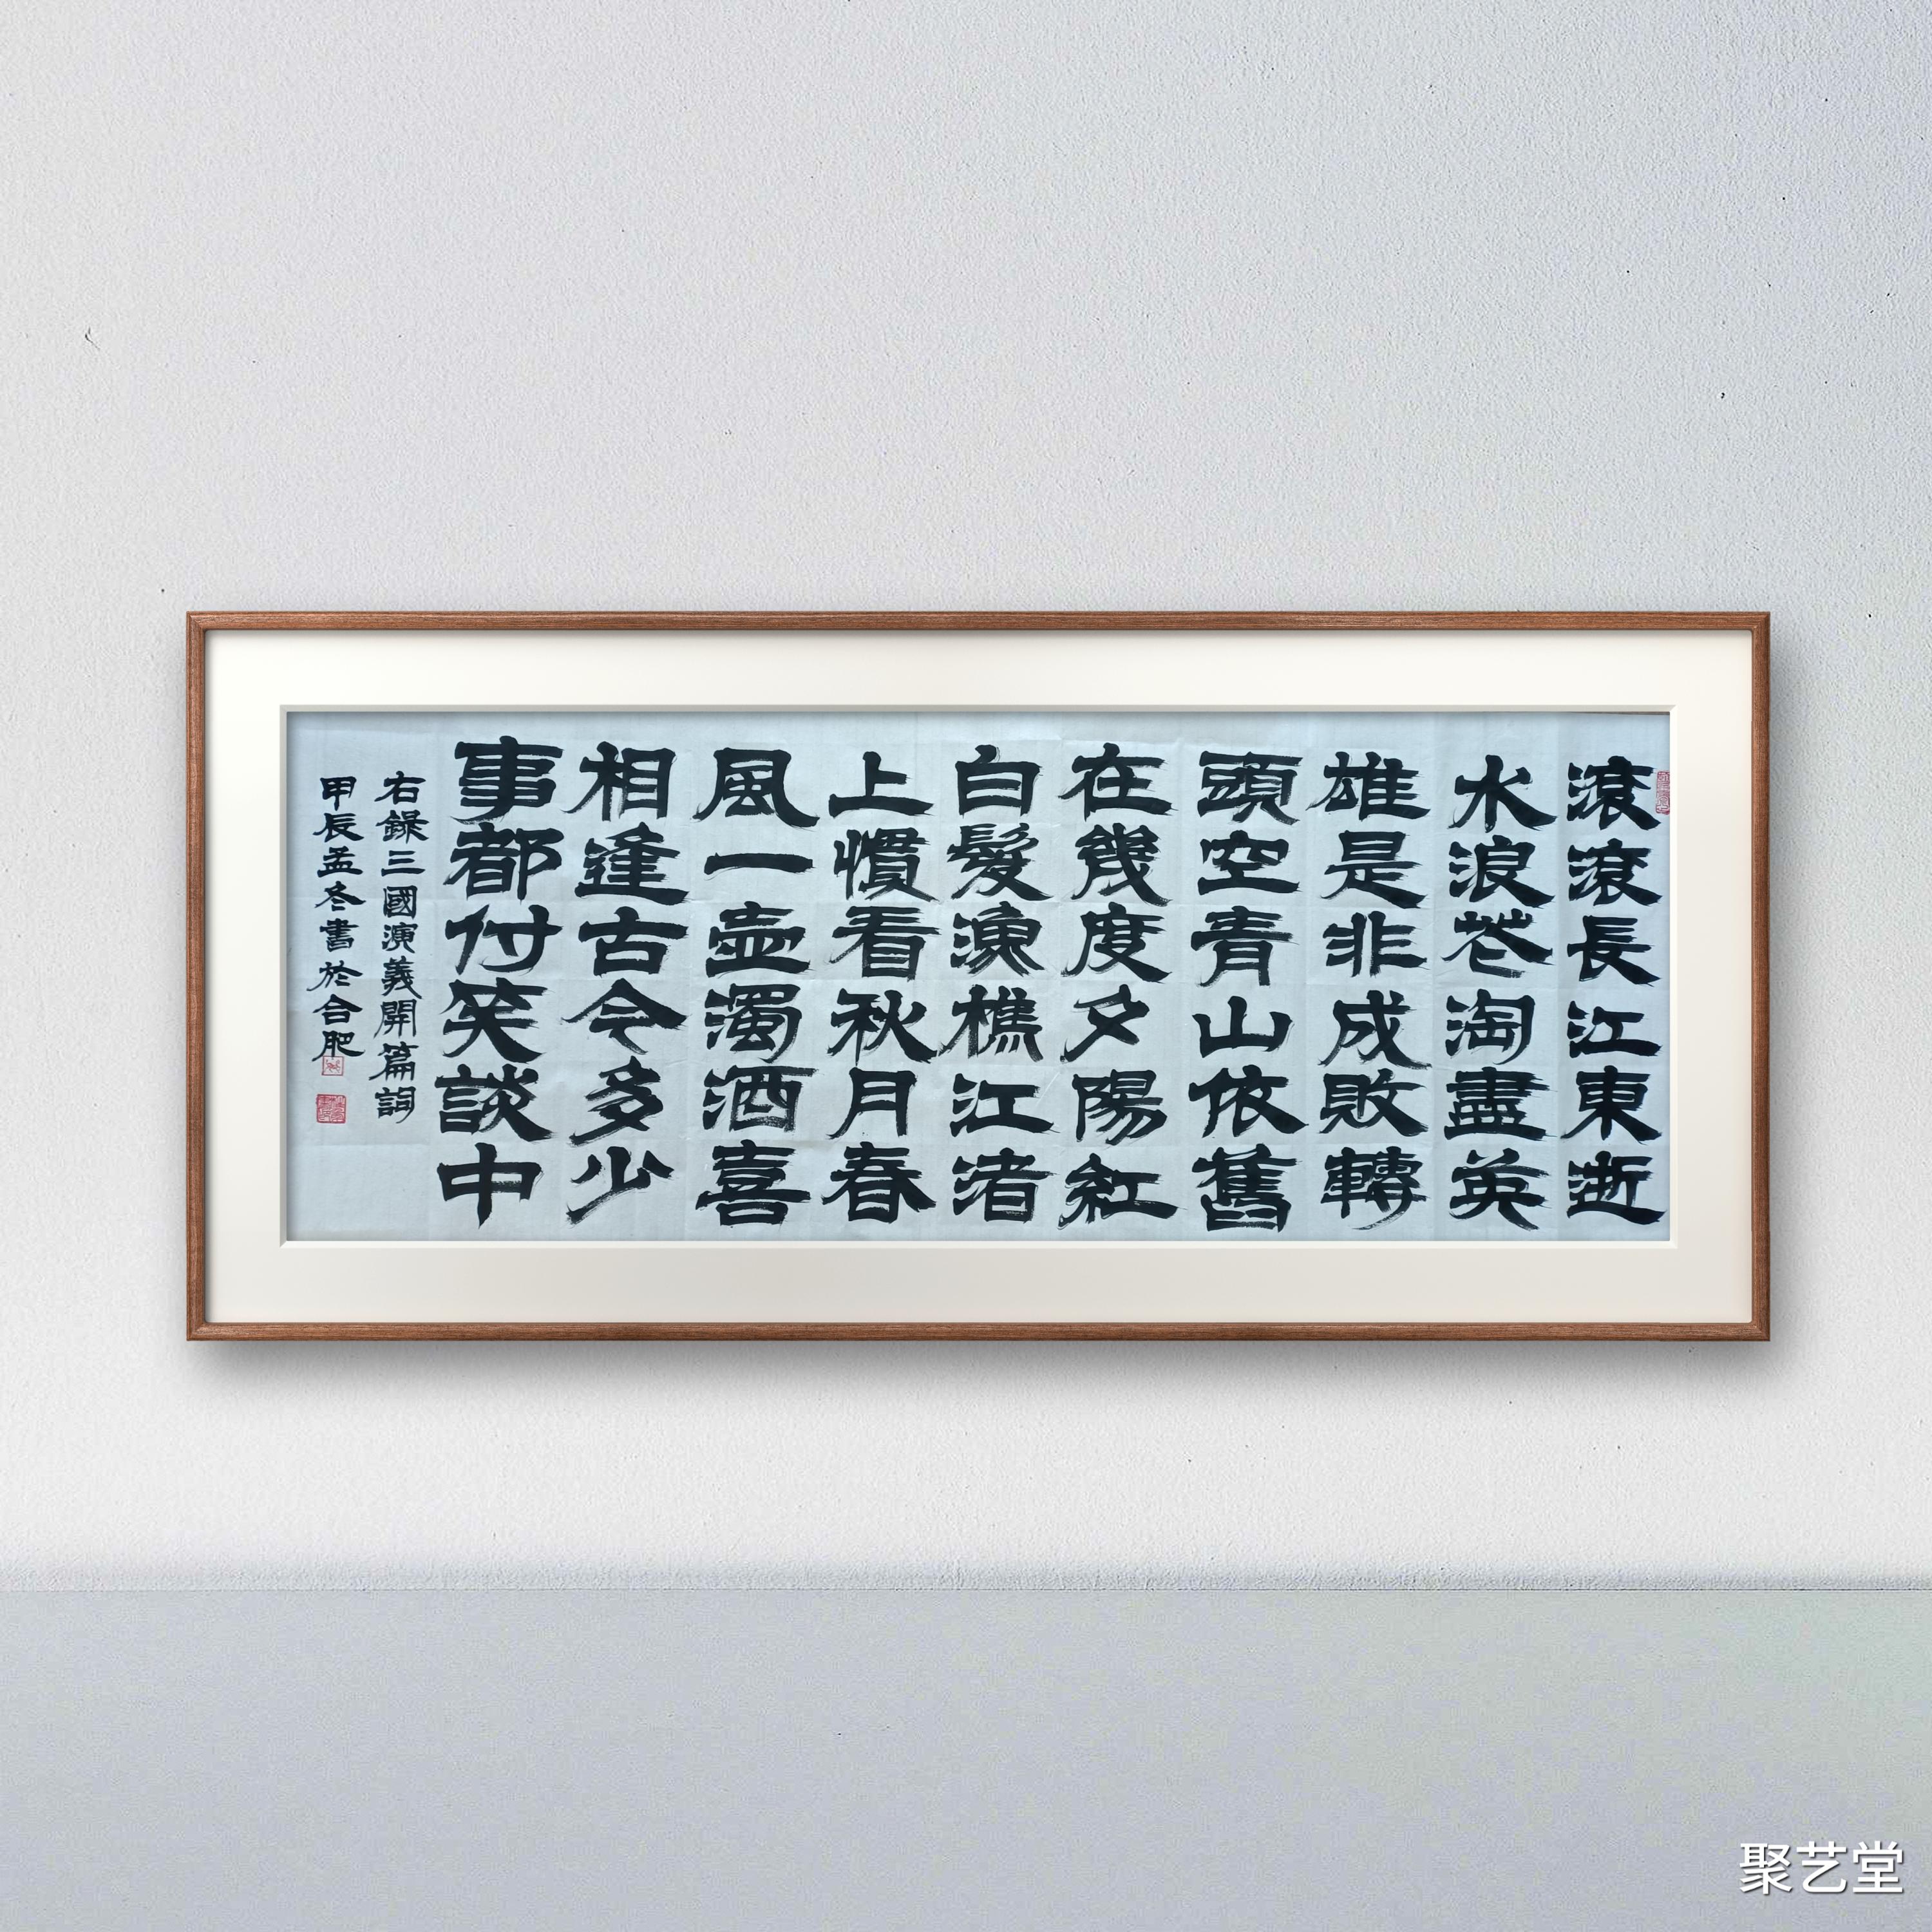 滾滾長江東逝
水浪花淘盡英
雄是非成敗轉
頭空青山依舊
在幾度夕陽紅
白髮漁樵江渚
上慣看秋月春
風一壺濁酒喜
相逢古今多少
事都付笑談中
右錄三國演義開篇詞
甲辰孟冬書於合肥
聚艺堂